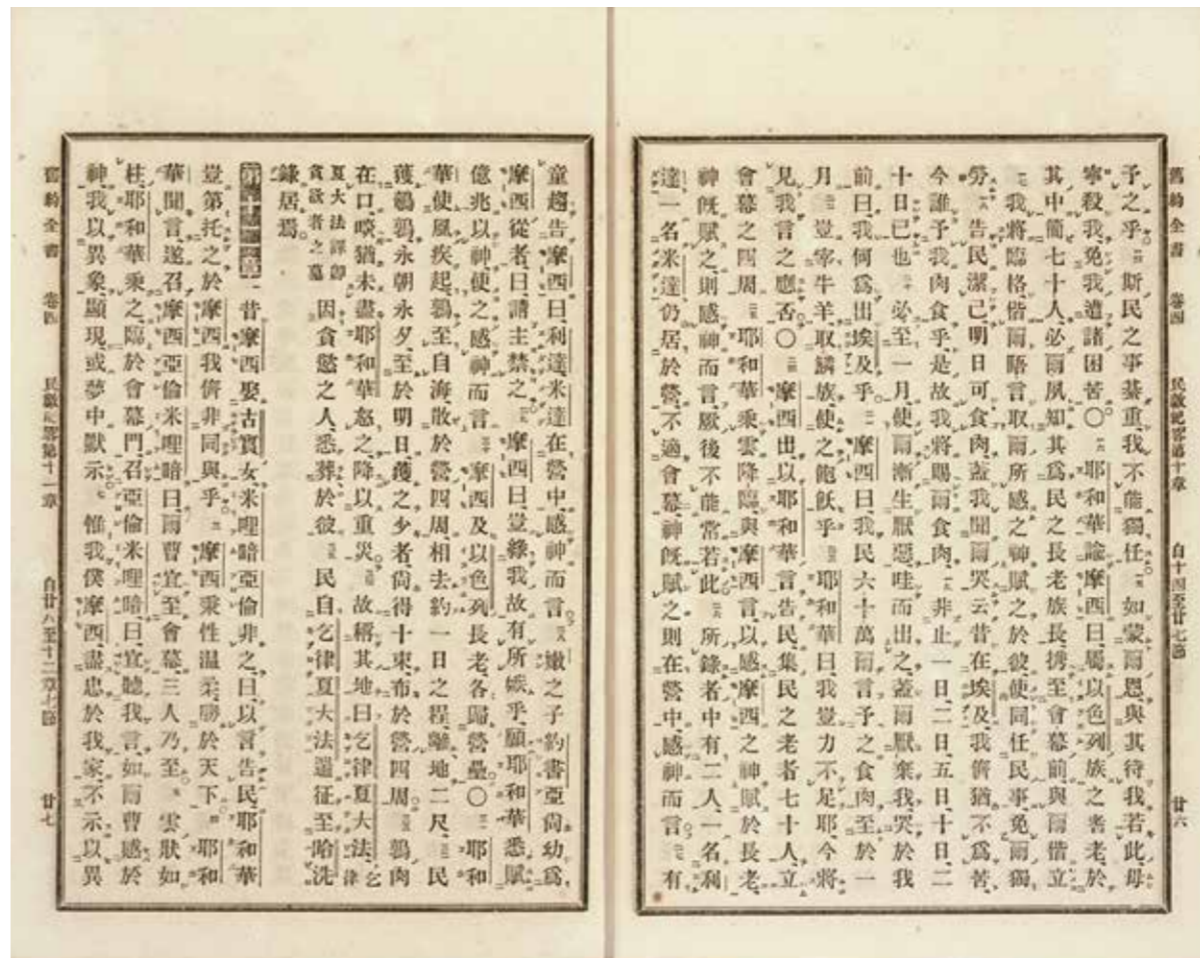 舊約全書 卷四 民數紀畧第十章 自十四至廿七節 廿六
予之乎、斯民之事綦重、我不能獨任、如蒙爾恩、與其待我若此、毋
寧殺我、免我遭諸困苦、〇耶和華諭摩西曰、屬以色列族之耆老、於
其中簡七十人、必爾夙知其爲民之長老族長、携至會幕前、與爾偕立、
我將臨格、偕爾晤言、取爾所感之神、賦之於彼、使同任民事、免爾獨
勞、告民潔己、明日可食肉、蓋我聞爾哭云、昔在埃及、我儕猶不爲苦、
今誰予我肉食乎、是故我將賜爾食肉、非止一日、二日、五日、十日、二
十日已也、必至一月、使爾漸生厭惡、哇而出之、蓋爾厭棄我、哭於我
前曰、我何爲出埃及乎、摩西曰、我民六十萬、爾言予之食肉、至於一
月、豈宰牛羊、取鱗族、使之飽飫乎、耶和華曰、我豈力不足耶、今將
見我言之應否、〇摩西出、以耶和華言告民、集民之老者七十人、立
會幕之四周、耶和華乘雲降臨、與摩西言、以感摩西之神、賦於長老、
神旣賦之、則感神而言、厥後不能常若此、所錄者中有二人、一名利
達、一名米達、仍居於營、不適會幕、神旣賦之、則在營中、感神而言、有
舊約全書 卷四 民數紀畧第十一章 自廿八至十二章七節 廿七
童趨告摩西曰、利達、米達在營中、感神而言、嫩之子約書亞尙幼、爲
摩西從者、曰、請主禁之、摩西曰、豈緣我故、有所嫉乎、願耶和華悉賦
億兆以神、使之感神而言、摩西及以色列長老、各歸營壘、〇耶和
華使風疾起、鶉至自海、散於營四周、相去約一日之程、離地二尺、民
獲鵪鶉、永朝永夕、至於明日、獲之少者、尙得十束、布於營四周、鶉肉
在口、啖猶未盡、耶和華怒之、降以重災、故稱其地曰乞律夏大法、乞律
夏大法譯卽貪欲者之墓 因貪慾之人、悉葬於彼、民自乞律夏大法遄征、至哈洗
錄居焉、
第十二章 一昔摩西娶古實女、米哩暗亞倫非之、曰、以言告民、耶和華
豈第托之於摩西、我儕非同與乎、摩西秉性温柔、勝於天下、耶和
華聞言、遂召摩西亞倫米哩暗曰、爾曹宜至會幕、三人乃至、雲狀如
柱、耶和華乘之、臨於會幕門、召亞倫米哩暗曰、宜聽我言、如爾曹感於
神、我以異象顯現、或夢中默示、惟我僕摩西、盡忠於我家、不示以異